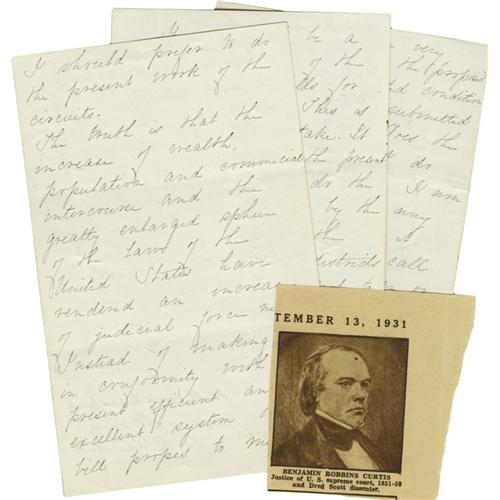 I should prefer to do
the present work of the
circuits.
The truth is that the
increase of wealth,
population and commercial
intercourse and the
greatly enlarged sphere
of the Laws of the
United States have
rendered an increase
of judicial force
Instead of making
in conformity with
present efficient an
excellent system
bill propes to
be a
of the
ds for
This is
take. It
the present
do the
by the
the
districts call
very
the proposed
ed condition
submitted
does the
do
I am
any
it
TEMBER 13, 1931
BENJAMIN ROBBINS CURTIS
Justice of U. S. supreme court, 1851-58
and Dred Scott dissenter.